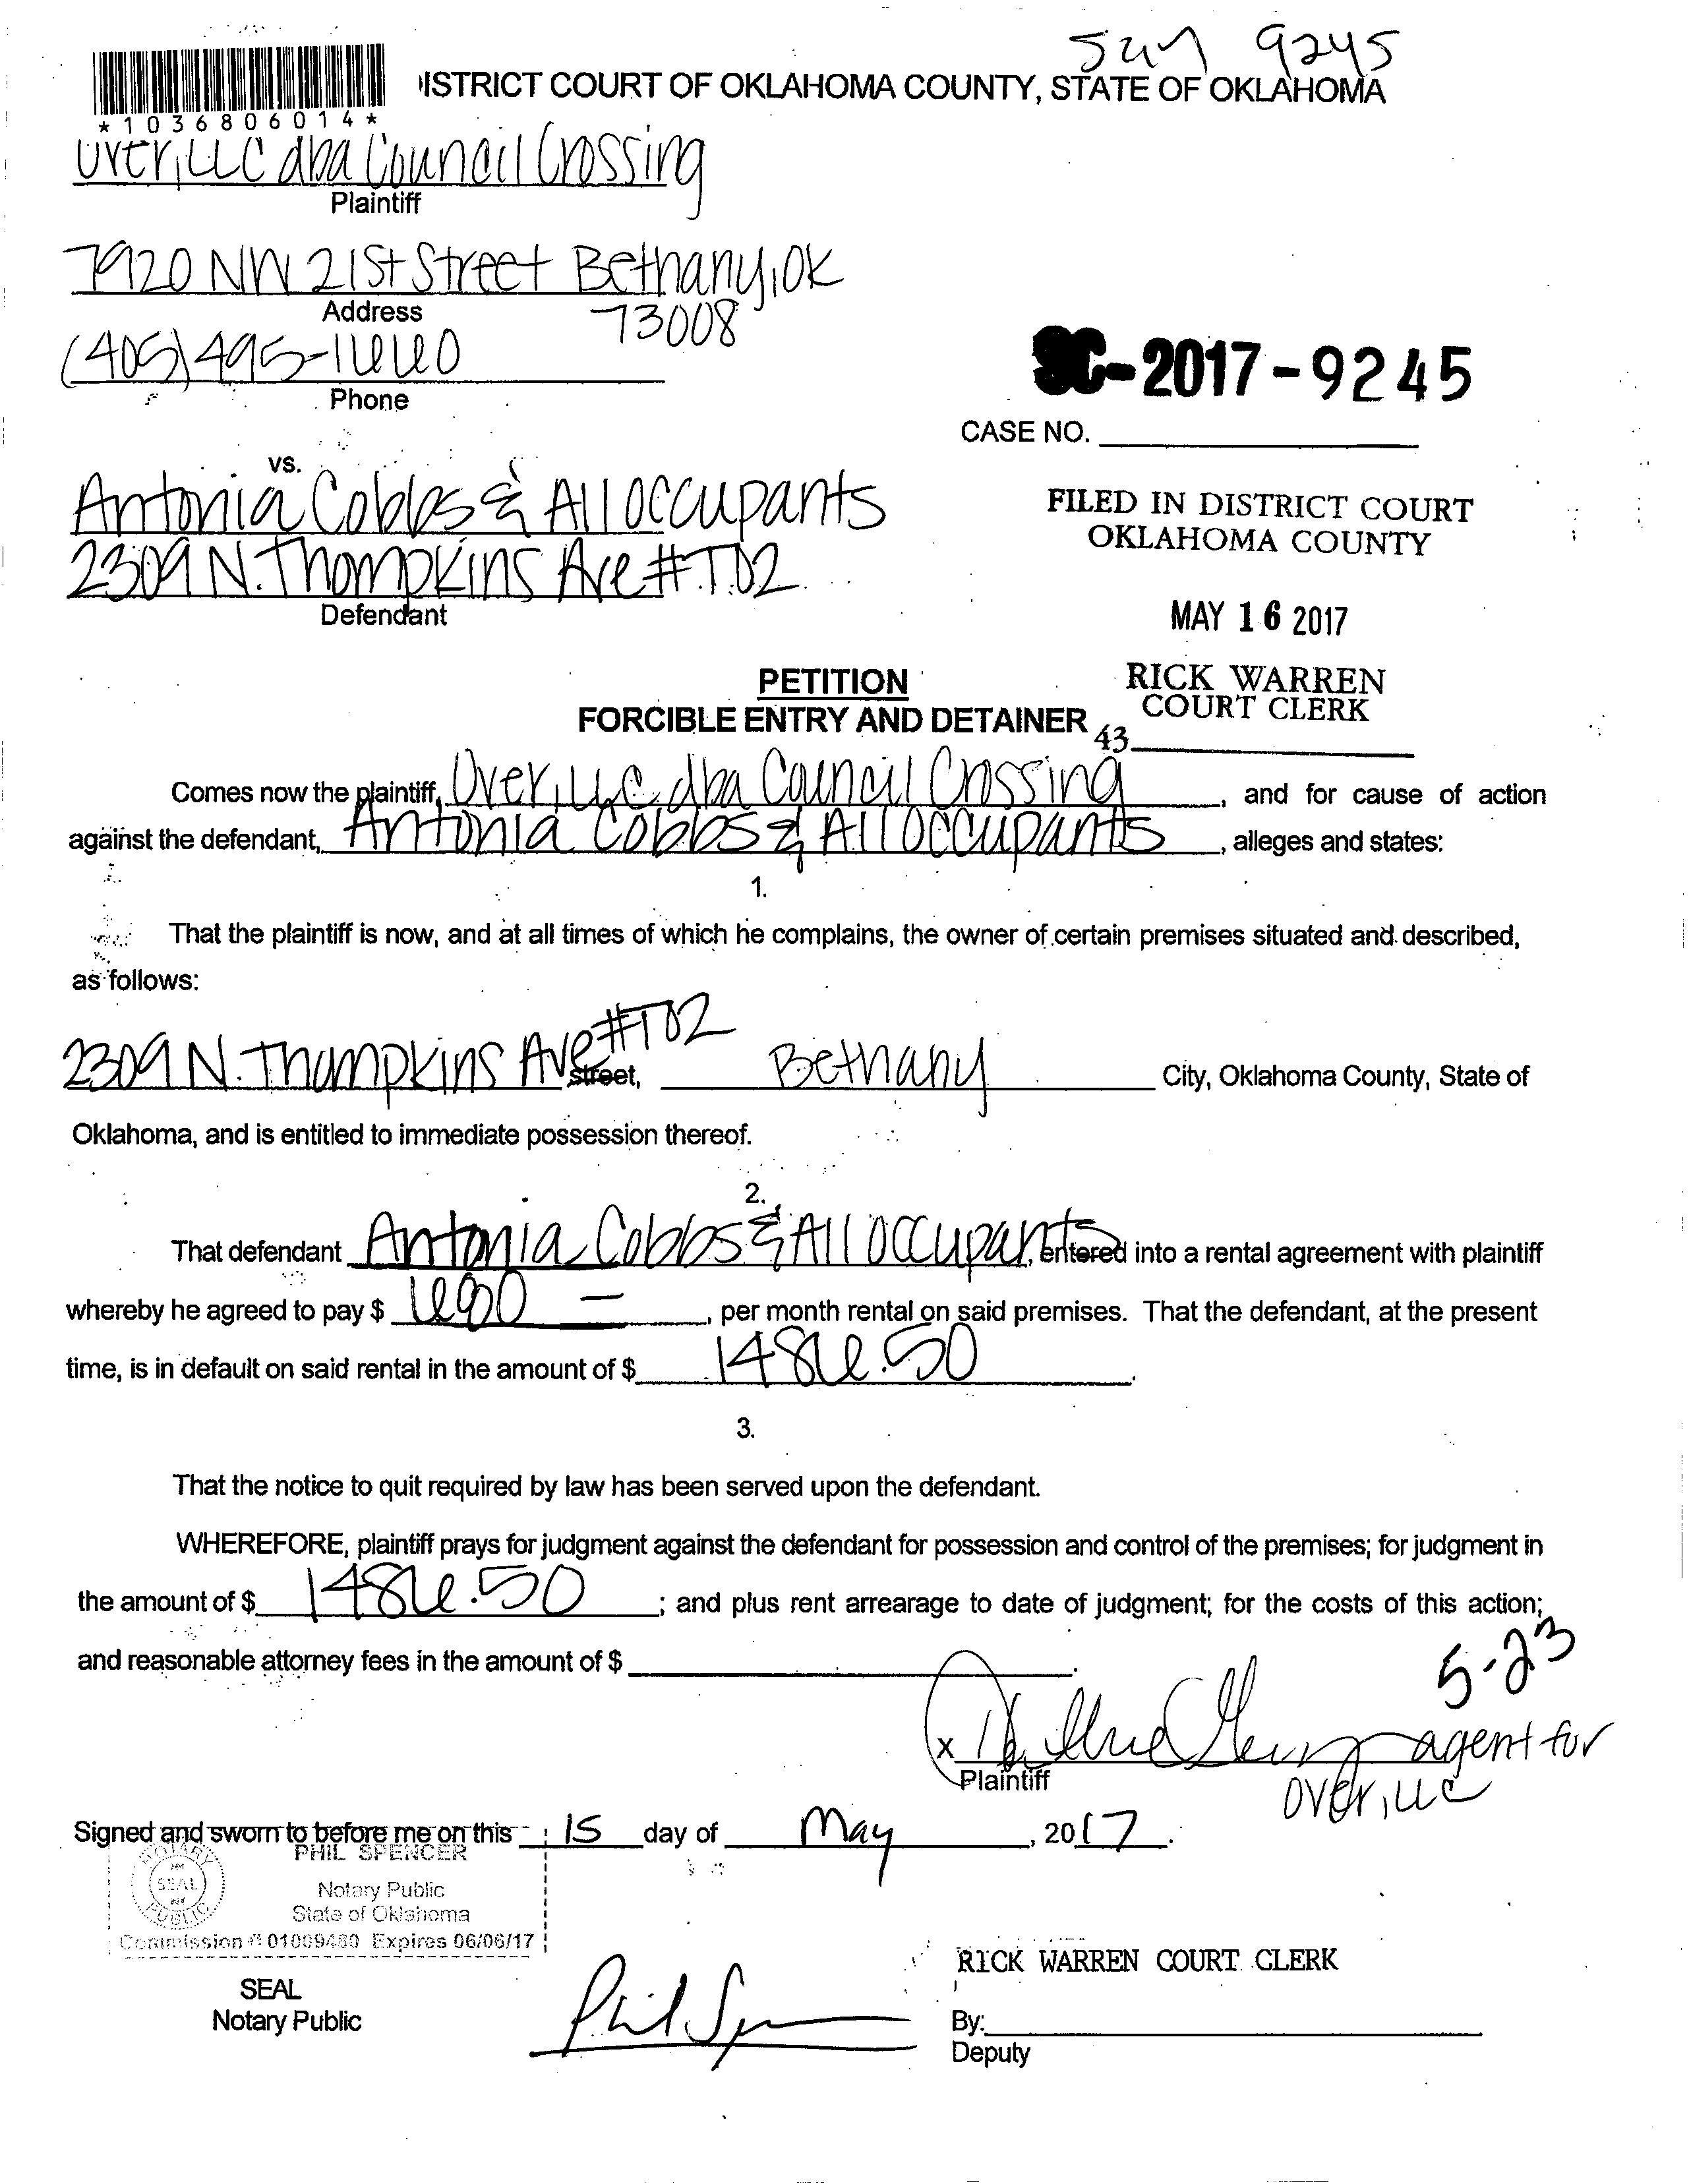 SM 9245
DISTRICT COURT OF OKLAHOMA COUNTY, STATE OF OKLAHOMA
*1036806014*
Over, LLC dba Council Crossing
Plaintiff
7920 NW 21st Street Bethany, OK
Address
73008
(405) 495-1660
Phone
SC-2017-9245
CASE NO.
vs.
Antonia Cobbs & All occupants
2309 N. Thompkins Ave # T02
Defendant
FILED IN DISTRICT COURT
OKLAHOMA COUNTY
MAY 16 2017
RICK WARREN
COURT CLERK
43
PETITION
FORCIBLE ENTRY AND DETAINER
Comes now the plaintiff, Over, LLC dba Council Crossing, and for cause of action
against the defendant, Antonia Cobbs & All occupants, alleges and states:
1.
That the plaintiff is now, and at all times of which he complains, the owner of certain premises situated and described,
as follows:
2309 N. Thompkins Ave #T02 street, Bethany City, Oklahoma County, State of
Oklahoma, and is entitled to immediate possession thereof.
2.
That defendant Antonia Cobbs & All occupants, entered into a rental agreement with plaintiff
whereby he agreed to pay $ 690 —, per month rental on said premises. That the defendant, at the present
time, is in default on said rental in the amount of $ 1486.50.
3.
That the notice to quit required by law has been served upon the defendant.
WHEREFORE, plaintiff prays for judgment against the defendant for possession and control of the premises; for judgment in
the amount of $ 1486.50; and plus rent arrearage to date of judgment; for the costs of this action;
and reasonable attorney fees in the amount of $ .
5-23
x agent for
Plaintiff
Over, LLC
Signed and sworn to before me on this 15 day of May, 2017.
PHIL SPENCER
Notary Public
State of Oklahoma
Commission # 01009480 Expires 06/06/17
NOTARY PUBLIC
SEAL
SEAL
Notary Public
Phil Sp
RICK WARREN COURT CLERK
By:
Deputy